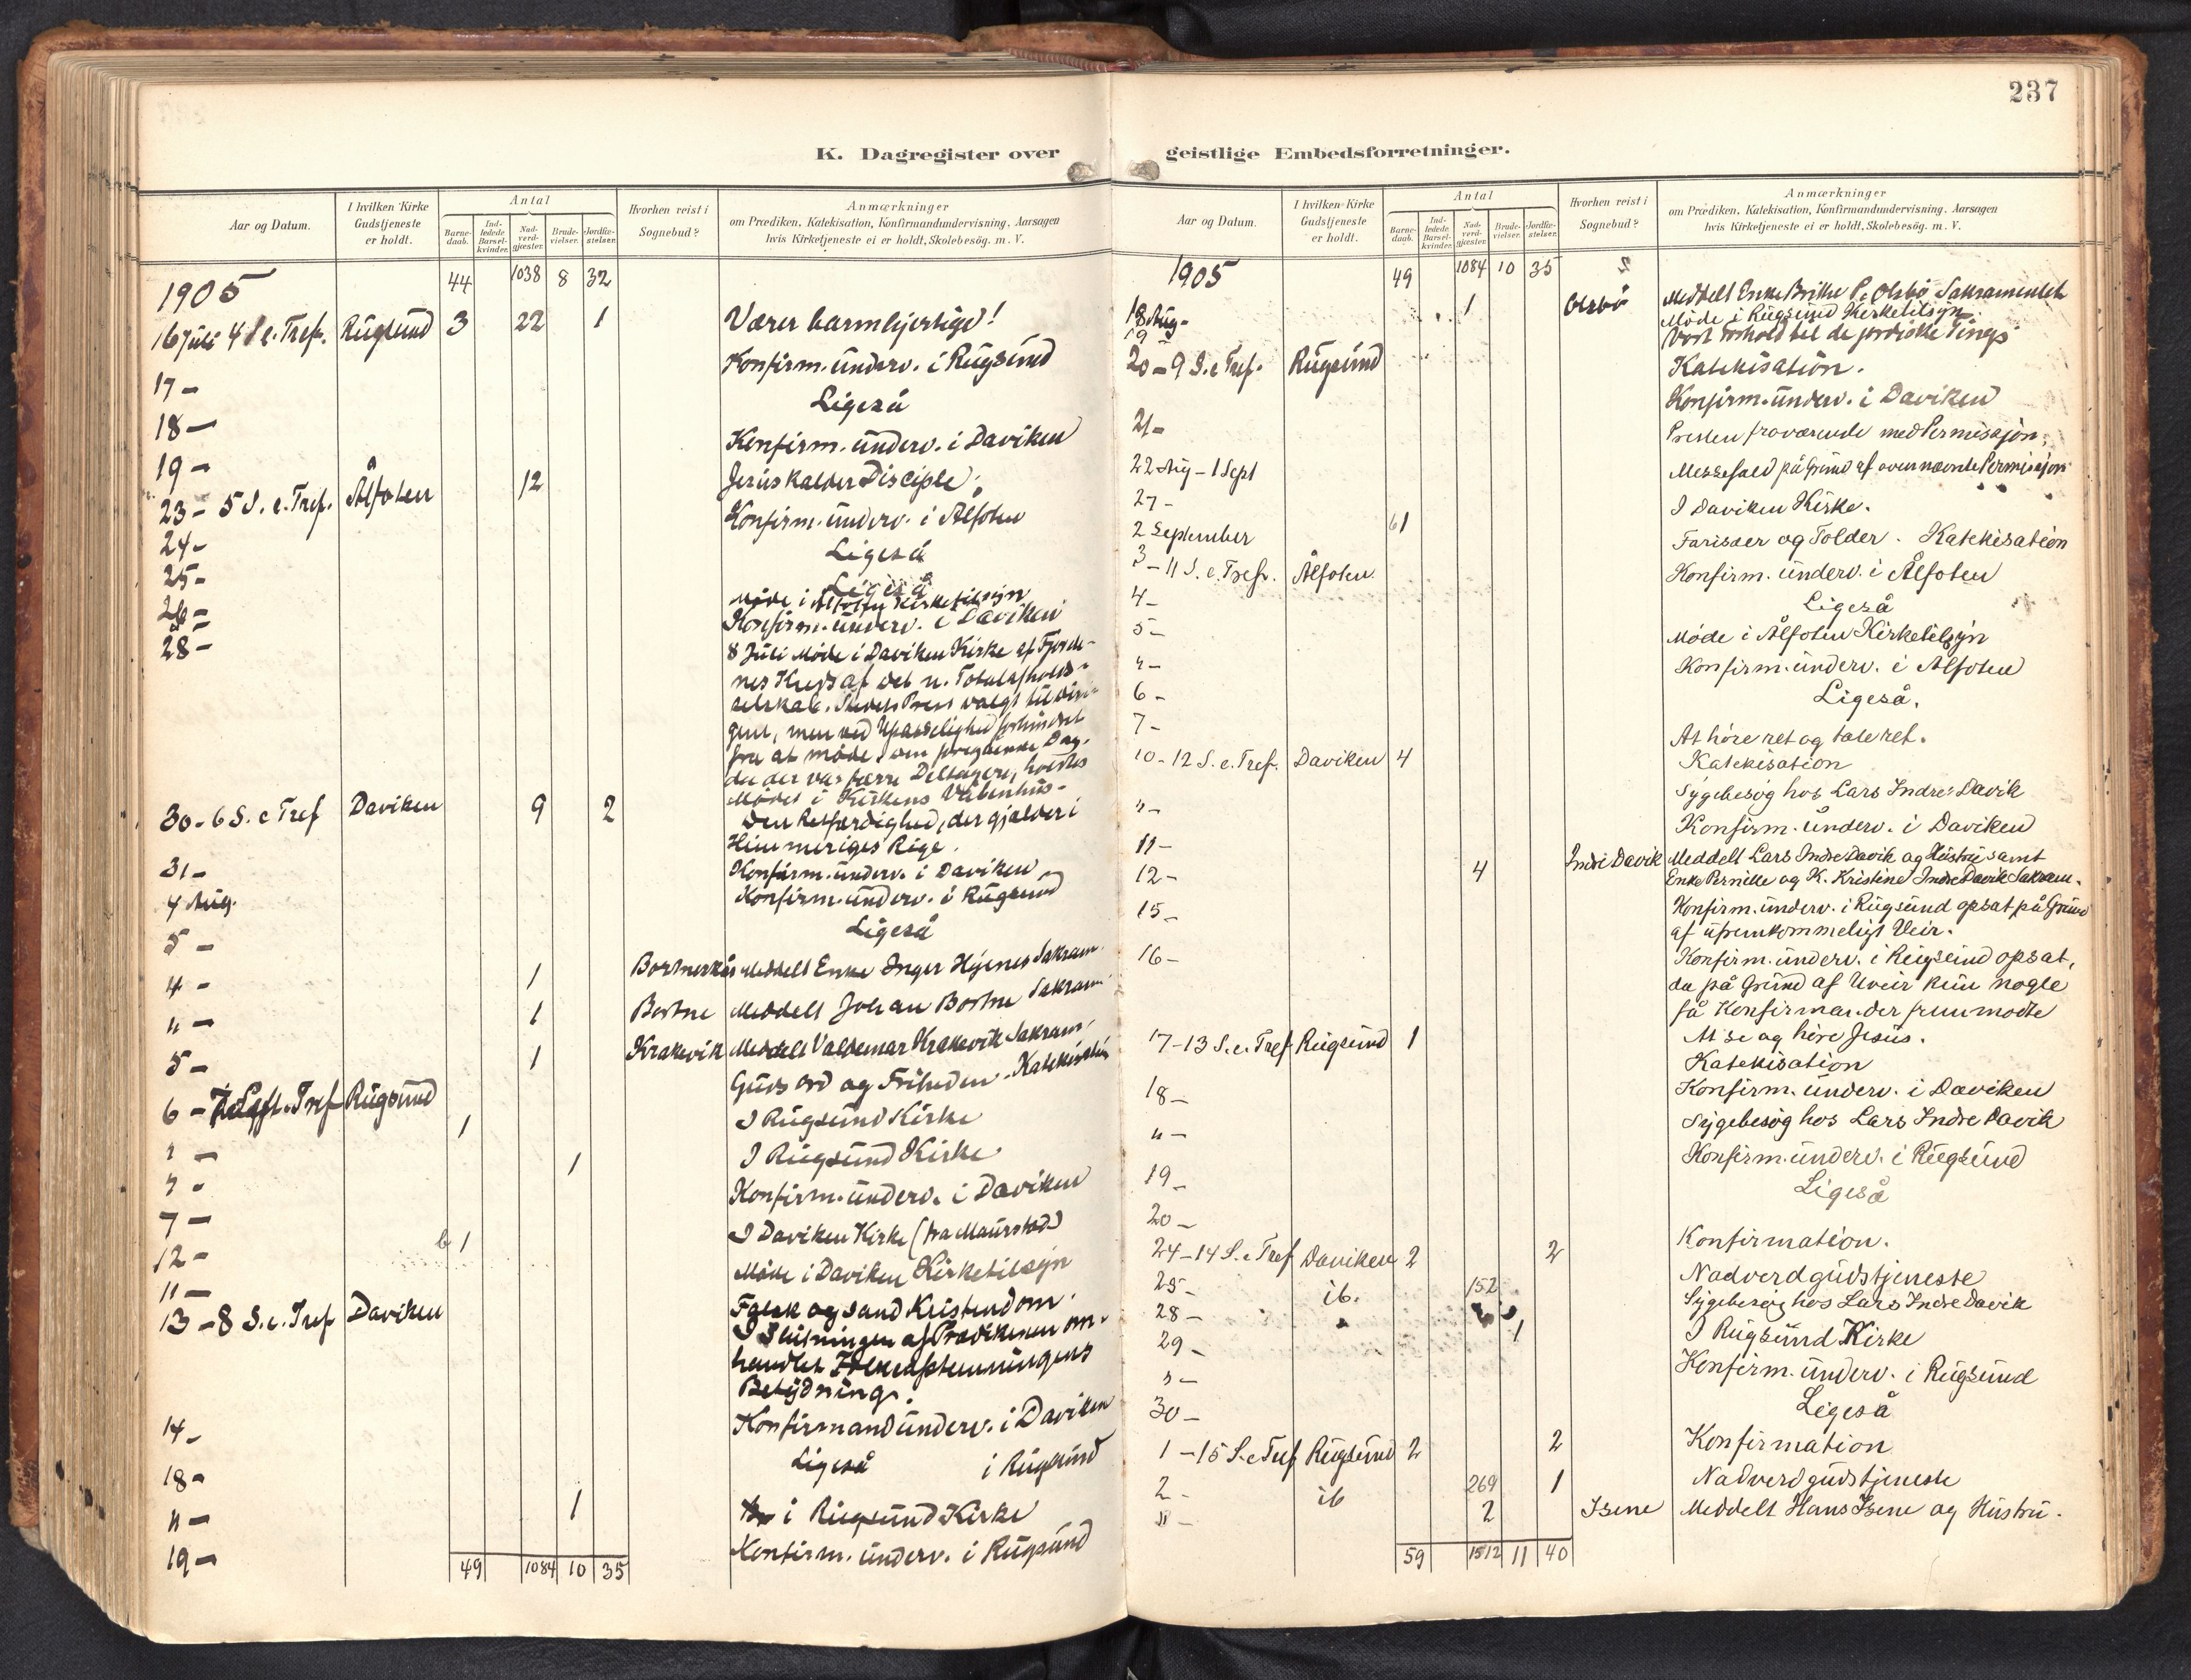 237
K. Dagregister over geistlige Embedsforretninger.
Aar og Datum. I hvilken Kirke Gudstjeneste er holdt. Antal Barne-daab. Ind-ledede Barsel-kvinder. Nad-verd-gjæster. Brude-vielser. Jordfæ-stelser. Hvorhen reist i Sognebud? Anmærkninger om Prædiken, Katekisation, Konfirmandundervisning, Aarsagen hvis Kirketjeneste ei er holdt, Skolebesög. m. V.
1905 44 1038 8 32
16 Juli 4 S. e. Tref. Rugsund 3 22 1 Værer barmhjertige!
17 - Konfirm. underv. i Rugsund
18 - Ligeså
19 - Konfirm. underv. i Daviken
23 - 5 S. e. Tref. Ålfoten 12 Jesus kalder Disciple.
24 - Konfirm. underv. i Ålfoten
25 - Ligeså
26 - Ligeså
Møde i Ålfoten Kirketilsyn
28 - Konfirm. underv. i Daviken
8 Juli Møde i Daviken Kirke af Fjorde-
nes Kreds af det n. Totalafholds-
selskab. Stedets Prest valgt til diri-
gent, men ved Upasselighed forhindret
fra at møde den foregående Dag.
da der var færre Deltagere, holdtes
Mødet i Kirkens Våbenhus.
30 - 6 S. e Tref Daviken 9 2 Den Retfærdighed, der gjælder i
Himmeriges Rige.
31 - Konfirm. underv. i Daviken
4 Aug. Konfirm. underv. i Rugsund
5 - Ligeså
4 - 1 Meddelt Enke Inger Hÿenes Sakram.
" - 1 Bortne Meddelt Johan Bortne Sakram.
5 - 1 Krakevik Meddelt Valdemar Krakevik Sakram.
6 - Tref Rugsund Guds Ord og Friheden. Katekisation
" - 1 I Rugsund Kirke
" - 1 I Rugsund Kirke
7 - Konfirm. underv. i Daviken
12 - b 1 I Daviken Kirke (fra Maurstad)
11 - Møde i Daviken Kirketilsyn
13 - 8 S. e. Tref Daviken Falsk og sand Kristendom.
I Slutningen af Prædikenen om-
handlet Folkeafstemningens
Betydning.
14 - Konfirmandunderv. i Daviken
18 - Ligeså i Rugsund
" - 1 i Rugsund Kirke
19 - Konfirm. underv. i Rugsund
49 1084 10 35
Aar og Datum. I hvilken Kirke Gudstjeneste er holdt. Antal Barne-daab. Ind-ledede Barsel-kvinder. Nad-verd-gjæster. Brude-vielser. Jordfæ-stelser. Hvorhen reist i Sognebud? Anmærkninger om Prædiken, Katekisation, Konfirmandundervisning, Aarsagen hvis Kirketjeneste ei er holdt, Skolebesög. m. V.
1905 49 1084 10 35
18 Aug. 1 Olsbø Meddelt Enke Brithe P. Olsbø Sakramentet
19 Møde i Rugsund Kirketilsyn.
20 - 9 S. e Tref. Rugsund Vort Forhold til de jordiske Ting
Katekisation.
21 - Konfirm. underv. i Daviken
22 Aug - 1 Sept Presten fraværende med Permissjon.
27 - Messefald på Grund af ovennævnte Permissjon
2 September b 1 I Daviken Kirke.
3 - 11 S. e. Tref. Ålfoten Farisæer og Tolder. Katekisation
4 - Konfirm. underv. i Ålfoten
5 - Ligeså
" - Møde i Ålfoten Kirketilsyn
6 - Konfirm. underv. i Ålfoten
7 - Ligeså.
10 - 12 S. e. Tref. Daviken 4 At høre ret og tale ret.
Katekisation
" - Sygebesøg hos Lars Indre Davik
11 - Konfirm. underv. i Daviken
12 - 4 Indre Davik Meddelt Lars Indre Davik og Hustru samt
Enke Pernille og K. Kristine Indre Davik Sakram.
15 - Konfirm. underv. i Rugsund opsat på Grund
af ufremkommeligt Veir.
16 - Konfirm. underv. i Rugsund opsat,
da på Grund af Uveir kun nogle
få Konfirmander fremmødte
17 - 13 S. e. Tref Rugsund 1 At se og høre Jesus.
Katekisation
18 - Konfirm. underv. i Daviken
" - Sygebesøg hos Lars Indre Davik
19 - Konfirm. underv. i Rugsund
20 - Ligeså
24 - 14 S. e Tref Daviken 2 2 Konfirmation.
25 - ib. 152 Nadverdgudstjeneste
28 - Sygebesøg hos Lars Indre Davik
29 - 1 I Rugsund Kirke
" - Konfirm. underv. i Rugsund
30 - Ligeså
1 - 15 S. e Tref Rugsund 2 2 Konfirmation
2 - ib 269 1 Nadverdgudstjeneste
" - 2 Isene Meddelt Hans Isene og Hustru.
59 1512 11 40